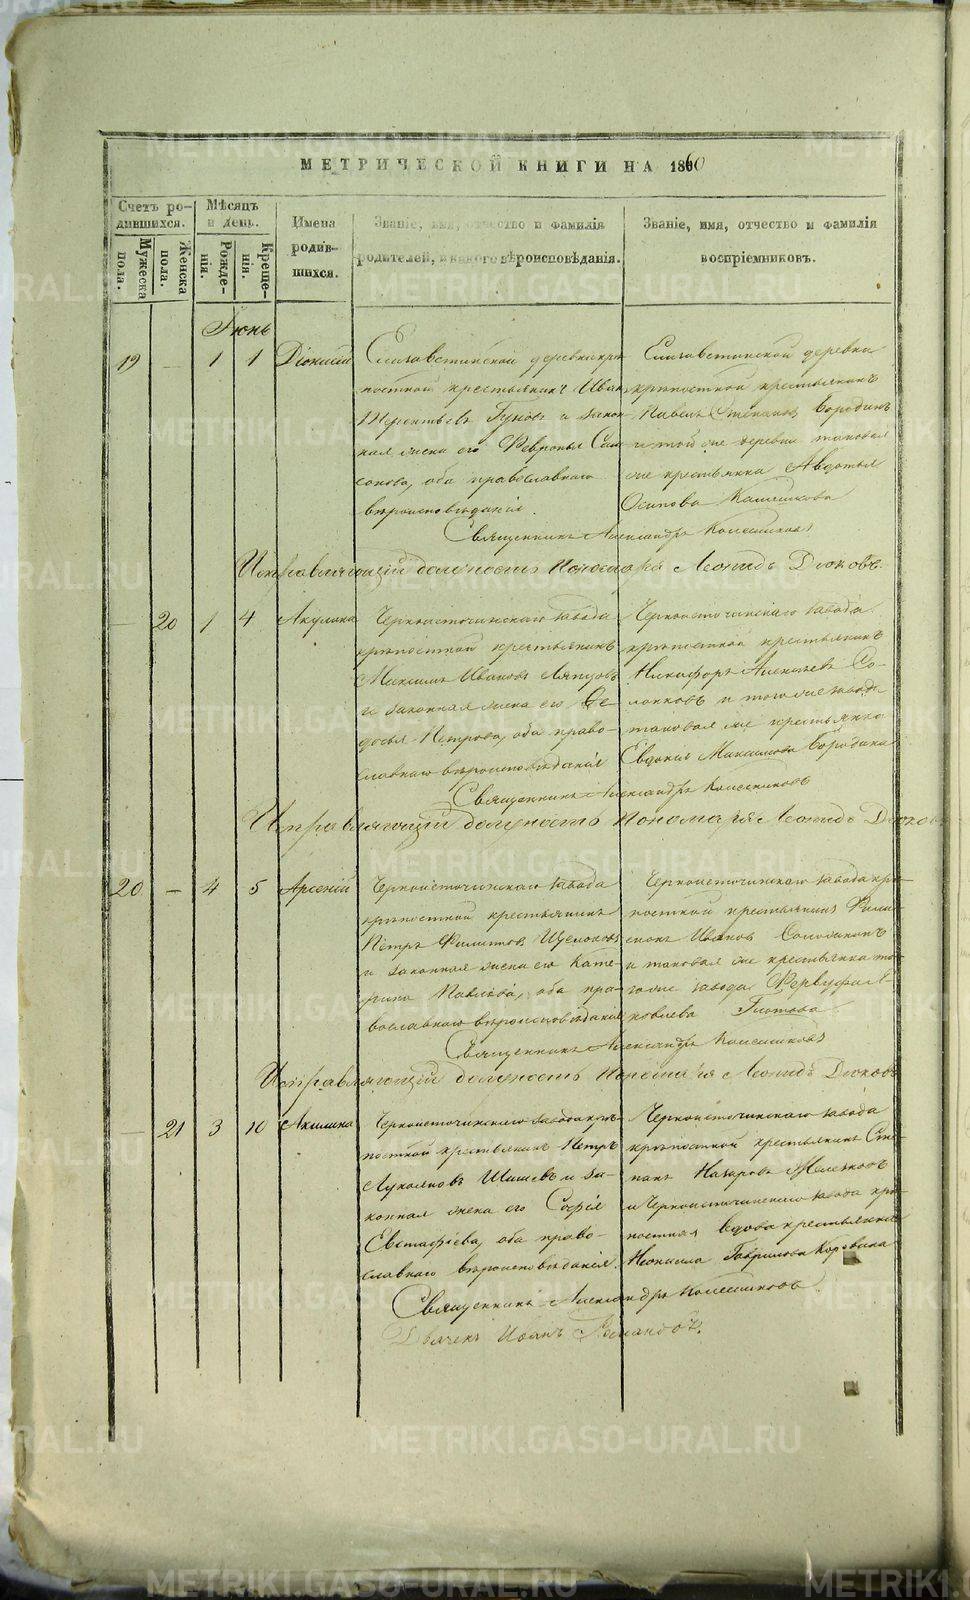 МЕТРИЧЕСКОЙ КНИГИ НА 1860
Счетъ ро-
дившихся.
Мужеска
пола.
Женска
пола.
Мѣсяцъ
и день.
Рожде-
нія.
Креще-
нія.
Имена
родив-
шихся.
Званіе, имя, отчество и фамилія
родителей, и какого вѣроисповѣданія.
Званіе, имя, отчество и фамилія
воспріемниковъ.
Іюнь
19 — 1 1 Діонисій
Елизаветинской деревни крѣ-
постной крестьянинъ Иван
Терентьевъ и закон
ная жена его Февронья Сам
сонова, оба православнаго
вѣроисповѣданія.
Елизаветинской деревни
крѣпостной крестьянинъ
Павелъ Степановъ Бородинъ
и той же деревни таковая
же крестьянка Авдотья
Осипова Калашкова
Священникъ Александръ Колесниковъ
Исправляющій должность Пономаря Леонидъ Дюковъ.
— 20 1 4 Акулина
Черноисточинскаго завода
крѣпостной крестьянинъ
Максимъ Ивановъ Ляпцовъ
и законная жена его Ѳе
досья Петрова, оба право-
славнаго вѣроисповѣданія
Черноисточинскаго завода
крѣпостной крестьянинъ
Никифоръ Алексѣевъ Со-
лонковъ и того же завода
таковая же крестьянка
Евдокія Максимова Бородина
Священникъ Александръ Колесниковъ
Исправляющій должность Пономаря Леонидъ Дюковъ
20 — 4 5 Арсеній
Черноисточинскаго завода
крѣпостной крестьянинъ
Петръ Филиповъ Щелоковъ
и законная жена его Кате-
рина Павлова, оба пра-
вославнаго вѣроисповѣданія
Черноисточинскаго завода крѣ-
постной крестьянинъ Фили-
монъ Ивановъ Солодкинъ
и таковая же крестьянка то-
го же завода Фервуфа Я-
ковлева Глотова
Священникъ Александръ Колесниковъ
Исправляющій должность Пономаря Леонидъ Дюковъ
— 21 3 10 Акилина
Черноисточинскаго завода крѣ-
постной крестьянинъ Петръ
Лукояновъ Шишевъ и за-
конная жена его Софія
Евстафіева, оба право-
славнаго вѣроисповѣданія.
Черноисточинскаго завода
крѣпостной крестьянинъ Сте-
панъ Назаровъ Железковъ
и Черноисточинскаго завода крѣ-
постная вдова крестьянка
Неонила Гаврилова Коровина
Священникъ Александръ Колесниковъ.
Дьячекъ Иванъ
METRIKI.GASO-URAL.RU